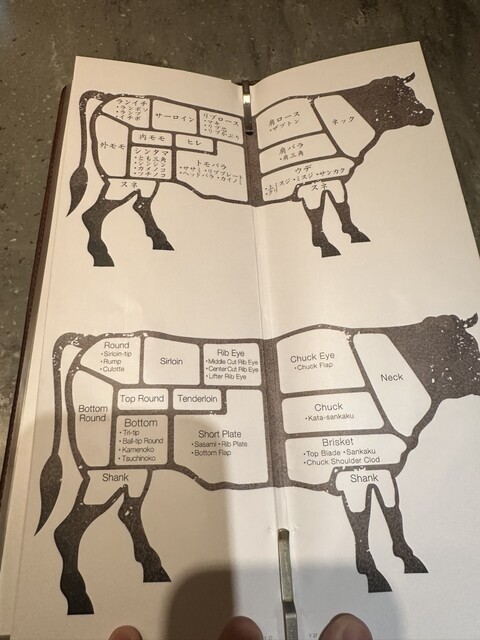 ランイチ
・ランボソ
・ランプ
・イチボ
サーロイン
リブロース
・マキ
・リブシン
外モモ
内モモ
ヒレ
シンタマ
・とも三角
・シンシン
・カメノコ
トモバラ
・ササミ・リブプレート
・ヘッドバラ・カイノミ
スネ
肩ロース
・ザブトン
ネック
肩バラ
・肩三角
ウデ
スジ・ミスジ・サンカク
スネ
Round
・Sirloin-tip
・Rump
・Culotte
Sirloin
Rib Eye
・Middle Cut Rib Eye
・Center Cut Rib Eye
・Lifter Rib Eye
Bottom
Round
Top Round
Tenderloin
Bottom
・Tri-tip
・Ball-tip Round
・Kamenoko
・Tsuchinoko
Short Plate
・Sasami・Rib Plate
・Bottom Flap
Shank
Chuck Eye
・Chuck Flap
Neck
Chuck
・Kata-sankaku
Brisket
・Top Blade ・Sankaku
・Chuck Shoulder Clod
Shank